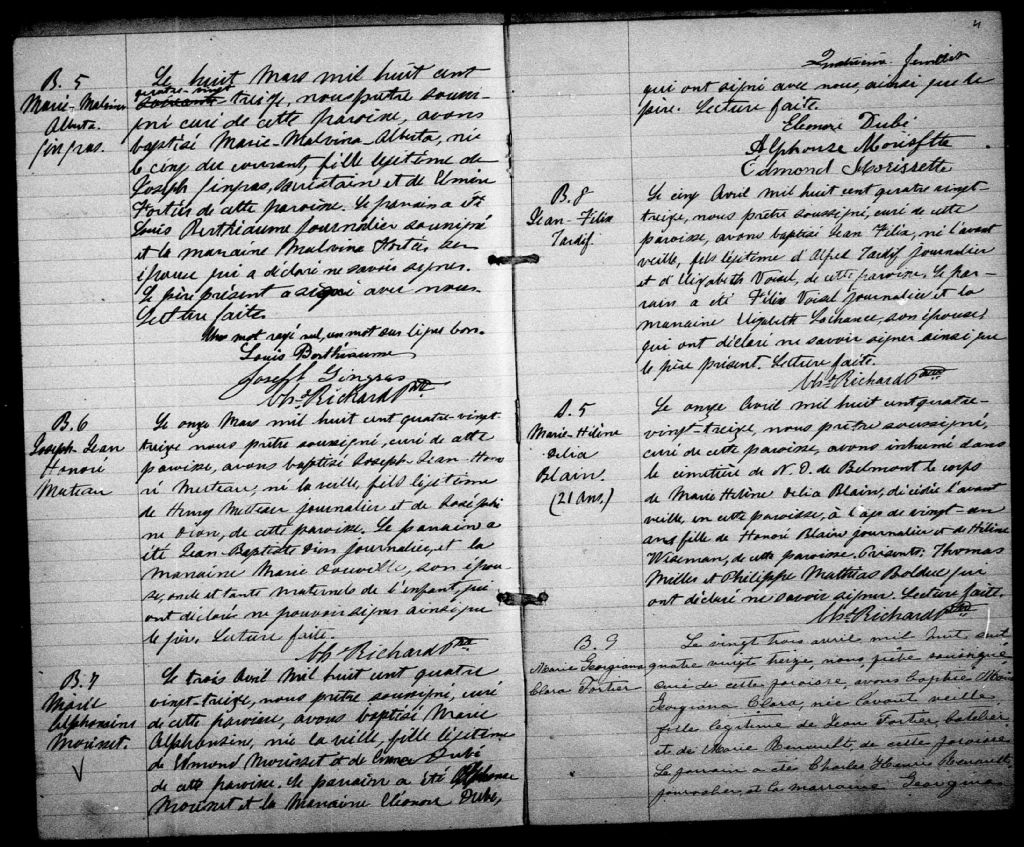 B. 5
Marie-Malvina
Alberta.
Gingras.
Le huit Mars mil huit cent
quatre-vingt
soixante treize, nous prêtre soussi-
gné curé de cette paroisse, avons
baptisé Marie-Malvina-Alberta, née
le cinq du courant, fille légitime de
Joseph Gingras, sacristain et de Elmire
Fortier de cette paroisse. Le parrain a été
Louis Berthiaume journalier soussigné
et la marraine Malvina Fortier, son
épouse qui a déclaré ne savoir signer.
Le père présent a signé avec nous.
Lecture faite.
Un mot rayé nul, un mot sur ligne bon.
Louis Berthiaume
Joseph Gingras
Chs Richard Ptre
B. 6
Joseph-Jean
Honoré
Muteau
Le onze Mars mil huit cent quatre-vingt
treize nous prêtre soussigné, curé de cette
paroisse, avons baptisé Joseph-Jean-Hono
ré Muteau, né la veille, fils légitime
de Henry journalier et de Joséphi
ne Dion, de cette paroisse. Le parrain a
été Jean-Baptiste Dion journalier, et la
marraine Marie Douville, son épou-
se, oncle et tante maternels de l'enfant, qui
ont déclaré ne pouvoir signer ainsi que
le père. Lecture faite.
Chs Richard Ptre
B. 7
Marie
Alphonsine
Morisset.
Le trois Avril mil huit cent quatre
vingt-treize, nous prêtre soussigné, curé
de cette paroisse, avons baptisé Marie
Alphonsine, née la veille, fille légitime
de Edmond Morisset et de Emma Dubé
de cette paroisse. Le parrain a été Alphonse
Morisset et la Marraine Eléonore Dubé,
4
Quatrième feuillet
qui ont signé avec nous, ainsi que le
père. Lecture faite.
Eleonore Dubé
Alphonse Morisette
Edmond Morissette
B. 8
Jean-Félix
Tardif.
Le cinq Avril mil huit cent quatre vingt-
treize, nous prêtre soussigné, curé de cette
paroisse, avons baptisé Jean Félix, né l'avant
veille, fils légitime d'Alfred Tardif journalier
et d'Elizabeth Voisel, de cette paroisse. Le par-
rain a été Félix Voisel journalier et la
marraine Elizabeth Lachance, son épouse,
qui ont déclaré ne savoir signer ainsi que
le père présent. Lecture faite.
Chs Richard Ptre
S. 5
Marie-Hélène
Délia
Blain.
(21 Ans.)
Le onze Avril mil huit cent quatre-
vingt-treize, nous prêtre soussigné,
curé de cette paroisse, avons inhumé dans
le cimetière de N. D. de Belmont le corps
de Marie Hélène Delia Blain, décédée l'avant
veille, en cette paroisse, à l'âge de vingt-un
ans fille de Honoré Blain journalier et de Hélène
Wiseman, de cette paroisse. Présents, Thomas
Milles et Philippe Mathias Bolduc qui
ont déclaré ne savoir signer. Lecture faite.
Chs Richard Ptre
B. 9
Marie Georgiana
Clara Fortier
Le vingt trois avril mil huit cent
quatre vingt treize, nous prêtre soussigné
curé de cette paroisse, avons baptisé Marie
Georgiana Clara, née l'avant veille
fille légitime de Jean Fortier, batelier
et de Marie Renault de cette paroisse
Le parrain a été Charles Henri Renault
journalier, et la marraine Georgiana